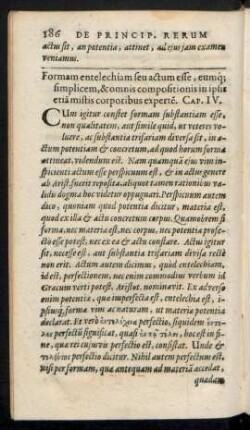 186 DE PRINCIP. RERUM
actu sit, an potentia, attinet, ad ejus jam examen
veniamus.
Formam entelechiam seu actum esse, eumq;
simplicem, & omnis compositionis in ipsis
etiã mistis corporibus expertẽ. CAP. IV.
CUm igitur constet formam substantiam esse,
non qualitatem, aut simile quid, ut veteres vo-
luere, ac substantia trifariam divisa sit, in a-
ctum potentiam & concretum, ad quod horum forma
attineat, videndum est. Nam quamquã ejus vim in-
spicienti actum esse perspicuum est, & in actus genere
ab Arist. fuerit reposita: aliquot tamen rationibus va-
lidis dogma hoc videtur oppugnari. Perspicuum autem
dico, quoniam quod potentia dicitur, materia est,
quod ex illa & actu concretum corpus. Quamobrem si
forma, nec materia est, nec corpus, nec potentia profe-
cto esse potest, nec ex ea & actu constare. Actu igitur
sit, necesse est, aut substantia trifariam divisa recte
non erit. Actum autem dicimus, quod entelechiam,
id est, perfectionem, nec enim commodius verbum id
Græcum verti potest, Aristot. nominavit. Ex adverso
enim potentia, quæ imperfecta est, entelechia est, i-
psiusq, forma vim acnaturam, ut materia potentia
declarat. Et verò ἐντελέχεια perfectio, siquidem ἐντε-
λὲς perfecti significat, quasi ὂν τέλει, hoc est in fi-
ne, qua rei cujusvis perfectio est, consistat. Unde &
τελείωσις perfectio dicitur. Nihil autem perfectum est,
nisi per formam, quæ antequam ad materiã accedat,
quadam